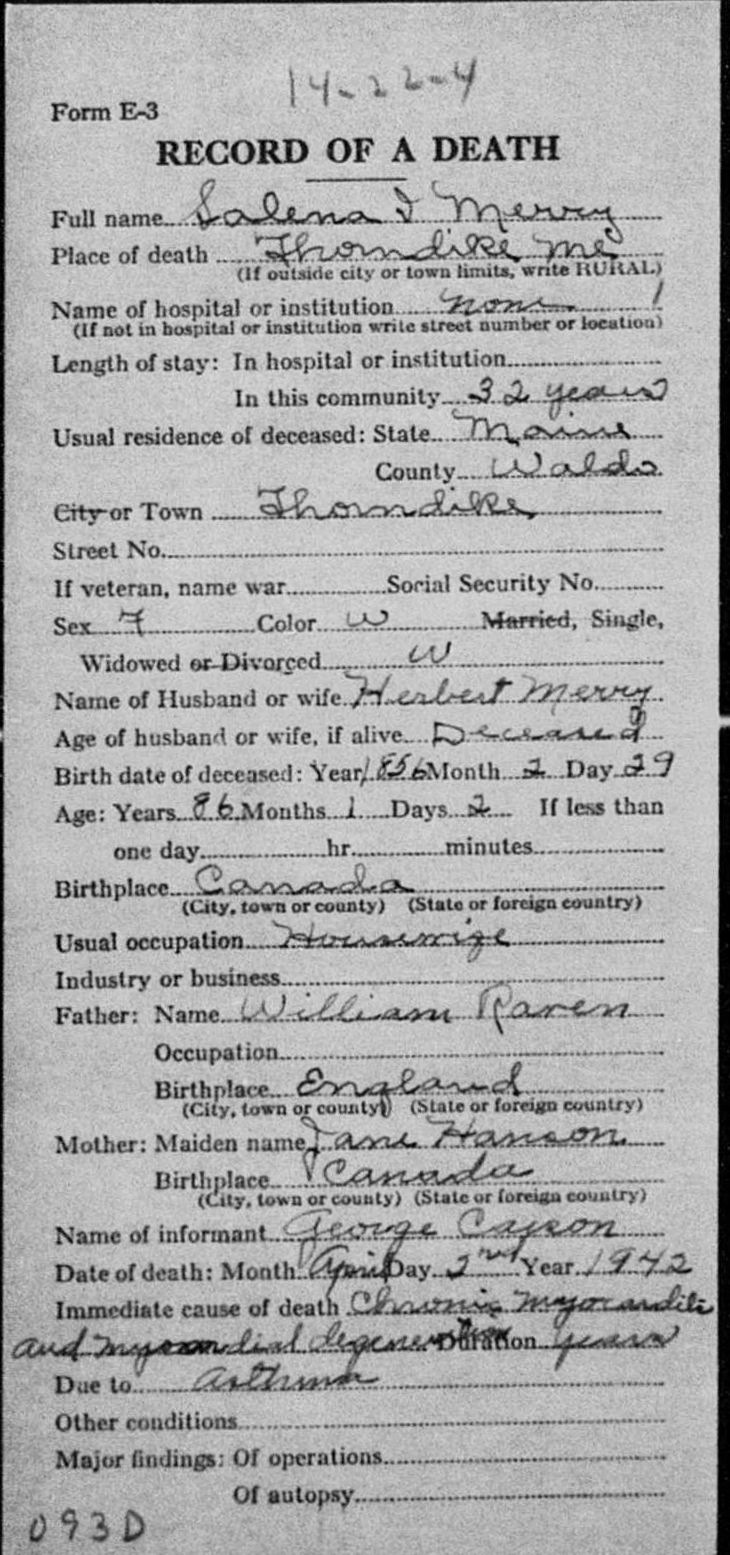 14-22-4
Form E-3
RECORD OF A DEATH
Full name Salena I Merry
Place of death Thorndike Me
(If outside city or town limits, write RURAL)
Name of hospital or institution none 1
(If not in hospital or institution write street number or location)
Length of stay: In hospital or institution
In this community 32 years
Usual residence of deceased: State Maine
County Waldo
City or Town Thorndike
Street No.
If veteran, name war Social Security No.
Sex F Color W Married, Single,
Widowed or Divorced W
Name of Husband or wife Herbert Merry
Age of husband or wife, if alive Deceased
Birth date of deceased: Year 1856 Month 2 Day 29
Age: Years 86 Months 1 Days 2 If less than
one day hr. minutes
Birthplace Canada
(City, town or county) (State or foreign country)
Usual occupation Housewife
Industry or business
Father: Name William Raven
Occupation
Birthplace England
(City, town or county) (State or foreign country)
Mother: Maiden name Jane Hanson
Birthplace Canada
(City, town or county) (State or foreign country)
Name of informant George
Date of death: Month April Day 2nd Year 1942
Immediate cause of death Chronic Myocarditis
and myocardial degeneration Duration years
Due to Asthma
Other conditions
Major findings: Of operations
Of autopsy
093D